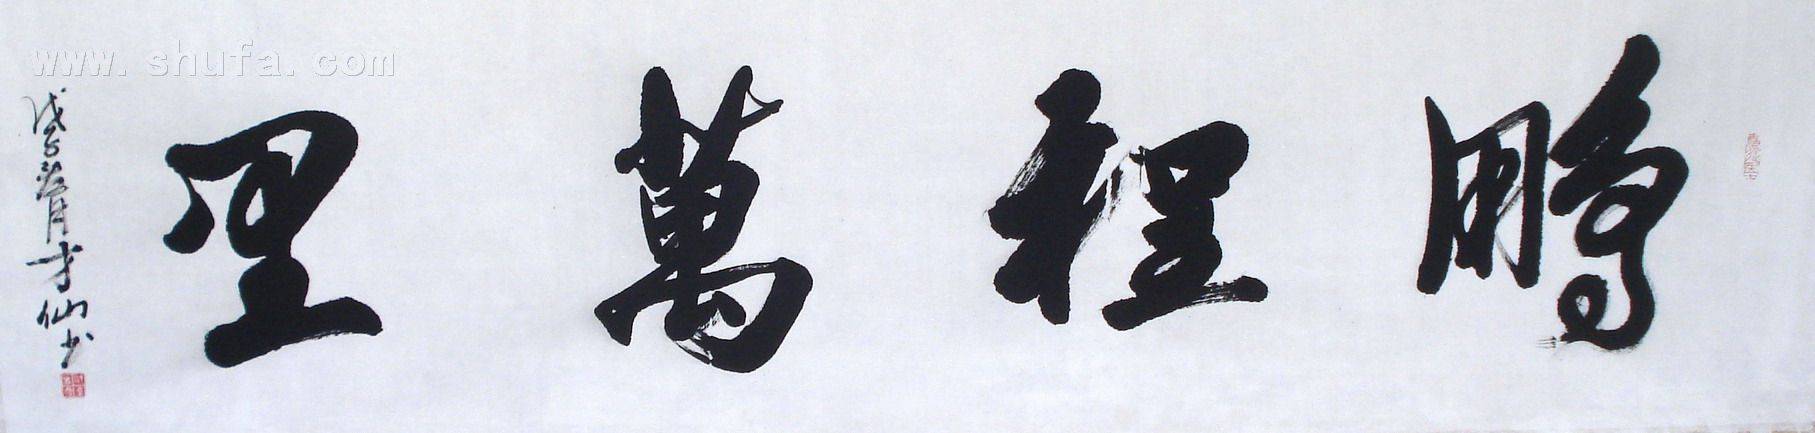 鵬程萬里
戊子 月才仙书
www.shufa.com